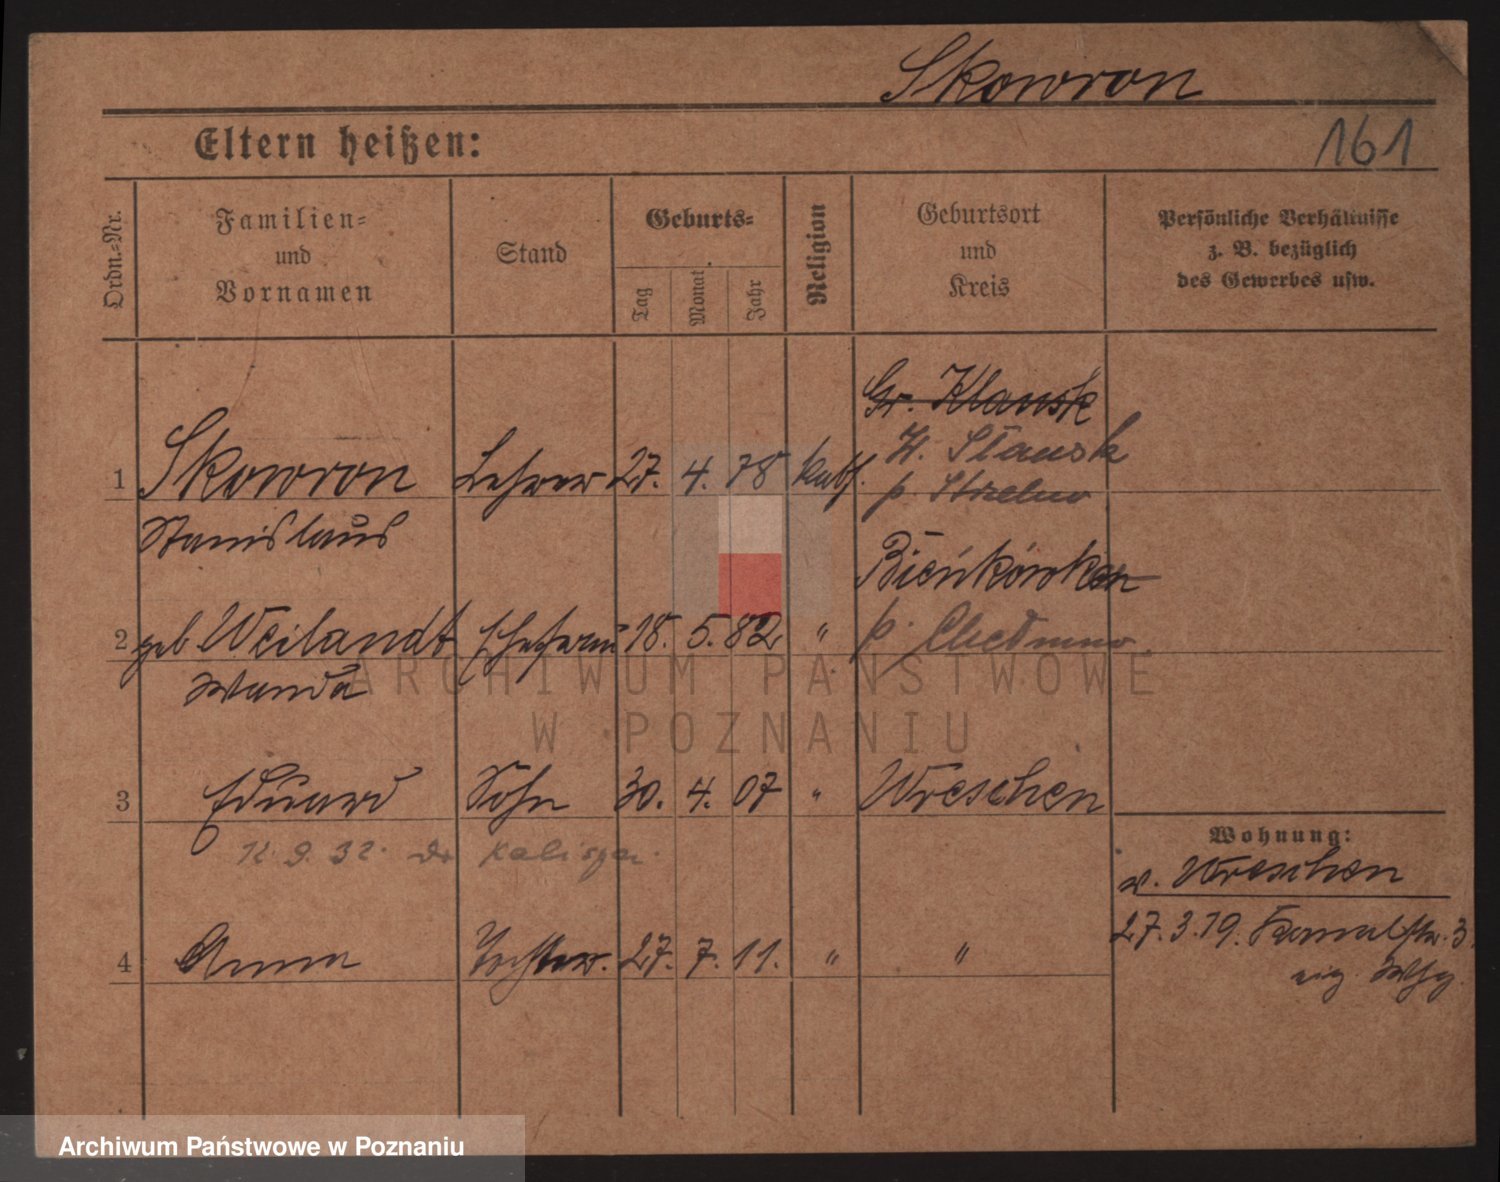 Skowron
Eltern heißen:
161
Ordn.-Nr.
Familien-
und
Vornamen
Stand
Geburts-
Tag
Monat
Jahr
Religion
Geburtsort
und
Kreis
Persönliche Verhältnisse
z. B. bezüglich
des Gewerbes usw.
Gr. Klausk
1 Skowron Lehrer 27. 4. 78 kath. W. Sławsk
p. Strzelno
Stanislaus
Bieńkówken
2 geb Weilandt Ehefrau 18. 5. 82 " p. Chełmno
Wanda
ARCHIWUM PAŃSTWOWE
W POZNANIU
3 Eduard Sohn 30. 4. 07 " Wreschen
12. 9. 32. do Kalisza.
Wohnung:
v. Wreschen
27. 3. 19. Kanalstr. 3.
eig. Whg.
4 Anna Tochter. 27. 7. 11. " "
Archiwum Państwowe w Poznaniu